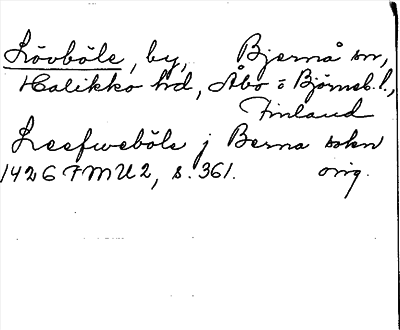 Lövböle, by, Bjernå sn,
Halikko hd, Åbo o Björneb. l.,
Finland
Leefweböle j Berna sokn
1426 FMU 2, s. 361. orig.